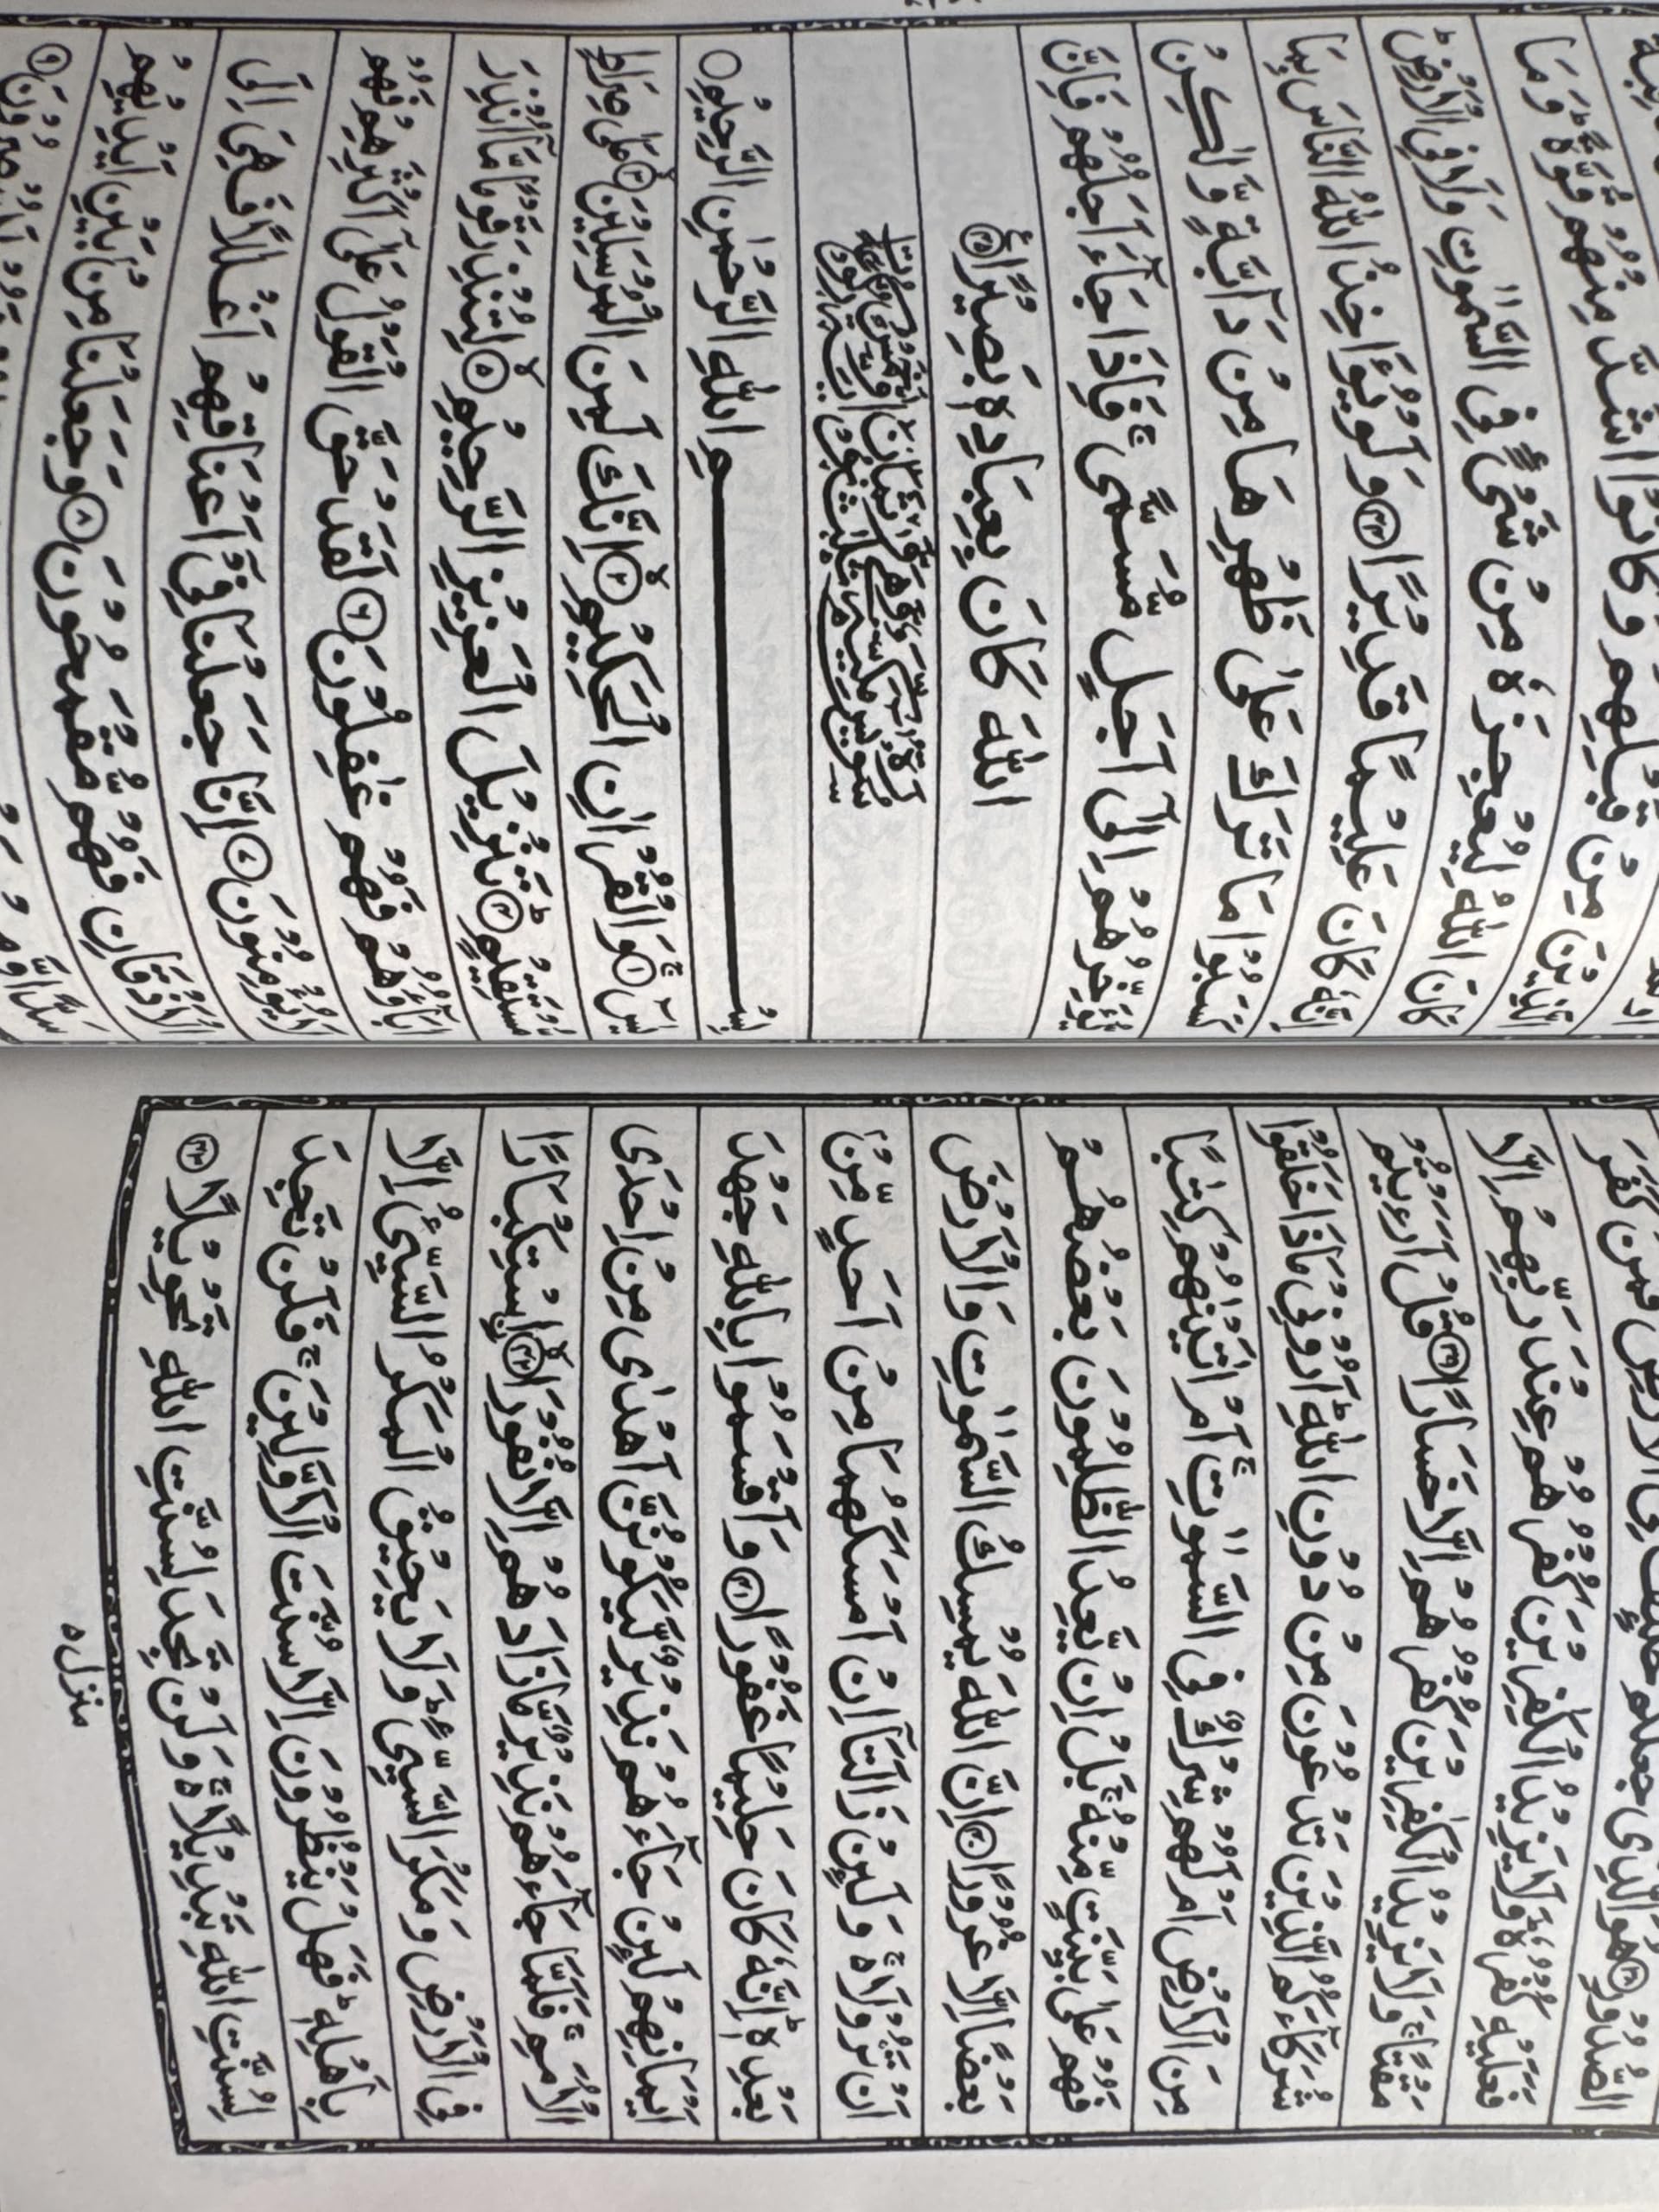 الصُّدُوْرِ ﴿٣٨﴾ هُوَ الَّذِيْ جَعَلَكُمْ خَلٰٓئِفَ فِي الْاَرْضِ ؕ فَمَنْ كَفَرَ
فَعَلَيْهِ كُفْرُهٗ ؕ وَلَا يَزِيْدُ الْكٰفِرِيْنَ كُفْرُهُمْ عِنْدَ رَبِّهِمْ اِلَّا
مَقْتًا ۚ وَلَا يَزِيْدُ الْكٰفِرِيْنَ كُفْرُهُمْ اِلَّا خَسَارًا ﴿٣٩﴾ قُلْ اَرَءَيْتُمْ
شُرَكَآءَكُمُ الَّذِيْنَ تَدْعُوْنَ مِنْ دُوْنِ اللّٰهِ ؕ اَرُوْنِيْ مَاذَا خَلَقُوْا
مِنَ الْاَرْضِ اَمْ لَهُمْ شِرْكٌ فِي السَّمٰوٰتِ ۚ اَمْ اٰتَيْنٰهُمْ كِتٰبًا
فَهُمْ عَلٰى بَيِّنَتٍ مِّنْهُ ۚ بَلْ اِنْ يَّعِدُ الظّٰلِمُوْنَ بَعْضُهُمْ
بَعْضًا اِلَّا غُرُوْرًا ﴿٤٠﴾ اِنَّ اللّٰهَ يُمْسِكُ السَّمٰوٰتِ وَالْاَرْضَ
اَنْ تَزُوْلَا ۚ وَلَئِنْ زَالَتَاۤ اِنْ اَمْسَكَهُمَا مِنْ اَحَدٍ مِّنْۢ
بَعْدِهٖ ؕ اِنَّهٗ كَانَ حَلِيْمًا غَفُوْرًا ﴿٤١﴾ وَاَقْسَمُوْا بِاللّٰهِ جَهْدَ
اَيْمَانِهِمْ لَئِنْ جَآءَهُمْ نَذِيْرٌ لَّيَكُوْنُنَّ اَهْدٰى مِنْ اِحْدَى
الْاُمَمِ ۚ فَلَمَّا جَآءَهُمْ نَذِيْرٌ مَّا زَادَهُمْ اِلَّا نُفُوْرًا ﴿٤٢﴾ اۨسْتِكْبَارًا
فِي الْاَرْضِ وَمَكْرَ السَّيِّئِ ؕ وَلَا يَحِيْقُ الْمَكْرُ السَّيِّئُ اِلَّا
بِاَهْلِهٖ ؕ فَهَلْ يَنْظُرُوْنَ اِلَّا سُنَّتَ الْاَوَّلِيْنَ ۚ فَلَنْ تَجِدَ
لِسُنَّتِ اللّٰهِ تَبْدِيْلًا ۚ۬ وَلَنْ تَجِدَ لِسُنَّتِ اللّٰهِ تَحْوِيْلًا ﴿٤٣﴾
منزل ٥
الَّذِيْنَ مِنْ قَبْلِهِمْ وَكَانُوْۤا اَشَدَّ مِنْهُمْ قُوَّةً ؕ وَمَا
كَانَ اللّٰهُ لِيُعْجِزَهٗ مِنْ شَيْءٍ فِي السَّمٰوٰتِ وَلَا فِي الْاَرْضِ ؕ
اِنَّهٗ كَانَ عَلِيْمًا قَدِيْرًا ﴿٤٤﴾ وَلَوْ يُؤَاخِذُ اللّٰهُ النَّاسَ بِمَا
كَسَبُوْا مَا تَرَكَ عَلٰى ظَهْرِهَا مِنْ دَآبَّةٍ وَّلٰكِنْ
يُّؤَخِّرُهُمْ اِلٰٓى اَجَلٍ مُّسَمًّى ۚ فَاِذَا جَآءَ اَجَلُهُمْ فَاِنَّ
اللّٰهَ كَانَ بِعِبَادِهٖ بَصِيْرًا ﴿٤٥﴾
بِسْمِ اللّٰهِ الرَّحْمٰنِ الرَّحِيْمِ ○
يٰسٓ ﴿١﴾ وَالْقُرْاٰنِ الْحَكِيْمِ ﴿٢﴾ اِنَّكَ لَمِنَ الْمُرْسَلِيْنَ ﴿٣﴾ عَلٰى صِرَاطٍ
مُّسْتَقِيْمٍ ﴿٤﴾ تَنْزِيْلَ الْعَزِيْزِ الرَّحِيْمِ ﴿٥﴾ لِتُنْذِرَ قَوْمًا مَّاۤ اُنْذِرَ
اٰبَآؤُهُمْ فَهُمْ غٰفِلُوْنَ ﴿٦﴾ لَقَدْ حَقَّ الْقَوْلُ عَلٰٓى اَكْثَرِهِمْ فَهُمْ
لَا يُؤْمِنُوْنَ ﴿٧﴾ اِنَّا جَعَلْنَا فِيْۤ اَعْنَاقِهِمْ اَغْلٰلًا فَهِيَ اِلَى
الْاَذْقَانِ فَهُمْ مُّقْمَحُوْنَ ﴿٨﴾ وَجَعَلْنَا مِنْۢ بَيْنِ اَيْدِيْهِمْ